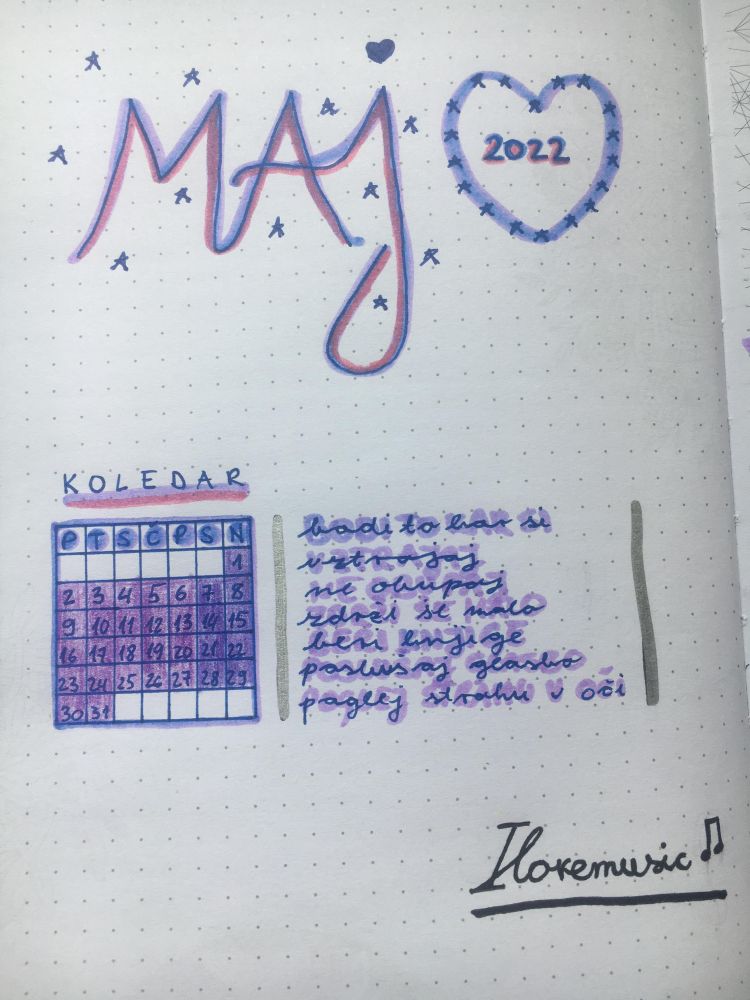 MAJ
2022
KOLEDAR
P T S Č P S N
1
2 3 4 5 6 7 8
9 10 11 12 13 14 15
16 17 18 19 20 21 22
23 24 25 26 27 28 29
30 31
bodi to kar si
vztrajaj
ne obupaj
zdrži še malo
beri knjige
poslušaj glasbo
poglej strahu v oči
Ilovemusic